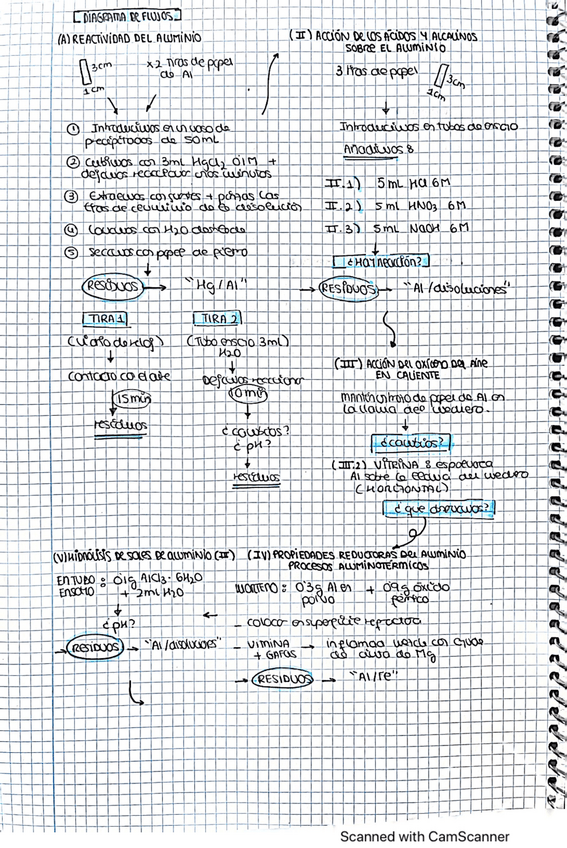 DIAGRAMA DE FLUJOS
(A) REACTIVIDAD DEL ALUMINIO
3cm
1cm
x 2 Tiras de papel
de Al
① Introducimos en un vaso de
precipitados de 50mL
② Cubrimos con 3mL HgCl2 0'1M +
dejamos reaccionar unos minutos
③ Extraemos con pinzas las
tiras de aluminio de la disolución
④ Lavamos con H2O destilada
⑤ Secamos con papel de filtro
RESIDUOS → "Hg/Al"
TIRA 1
(Vidrio de reloj)
Contacto con el aire
15min
residuos
TIRA 2
(Tubo ensayo 3mL)
H2O
Dejamos reaccionar
10min
¿cambios?
¿pH?
residuos
(II) ACCIÓN DE LOS ÁCIDOS Y ALCALINOS
SOBRE EL ALUMINIO
3 tiras de papel
3cm
1cm
Introducimos en tubos de ensayo
Añadimos 8
II.1) 5mL HCl 6M
II.2) 5mL HNO3 6M
II.3) 5mL NaOH 6M
¿HAY REACCIÓN?
→ RESIDUOS → "Al/disoluciones"
(III) ACCIÓN DEL OXÍGENO DEL AIRE
EN CALIENTE
trozo de papel de Al en
la llama del mechero.
¿cambios?
(III.2) VITRINA 8 espolvorea
Al sobre la llama del mechero
(HORIZONTAL)
¿qué observamos?
(V) HIDRÓLISIS DE SALES DE ALUMINIO (III)
EN TUBO : 0'1g AlCl3 · 6H2O
ENSAYO + 2mL H2O
¿pH?
→ RESIDUOS → "Al/disoluciones"
(IV) PROPIEDADES REDUCTORAS DEL ALUMINIO
PROCESOS ALUMINOTÉRMICOS
MORTERO : 0'3g Al en + 0'9g óxido
polvo férrico
– coloco en superficie refractaria
– VITRINA → inflamo mezcla con ayuda
+ GAFAS de cinta de Mg
→ RESIDUOS → "Al/Fe"
Scanned with CamScanner